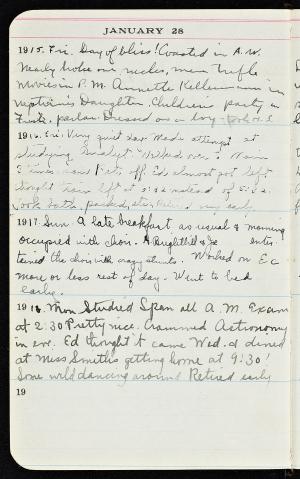 JANUARY 28
1915. Fri. Day of bliss! Coasted in A.M.
Nearly broke our necks, mere trifle
Movies in P.M. Annette Kellerman in
Neptune's Daughter. Children's party in
parlor. Dressed as a boy
Fri. Very quiet day Made attempt at
studying
times. Ed almost got left
thought train left at 5: instead of 5:
Took bath, packed, etc. early
1917. Sun. A late breakfast as usual & morning
occupied with choir. A. & enter-
tained the choir with crazy stunts. Worked on Ec
more or less rest of day. Went to bed
early.
1918. Mon Studied Span all A.M. Exam
at 2:30 Pretty nice. Crammed Astronomy
in eve. Ed thought it came Wed. & dined
at Miss Smith's getting home at 9:30!
Some wild dancing around Retired early
19